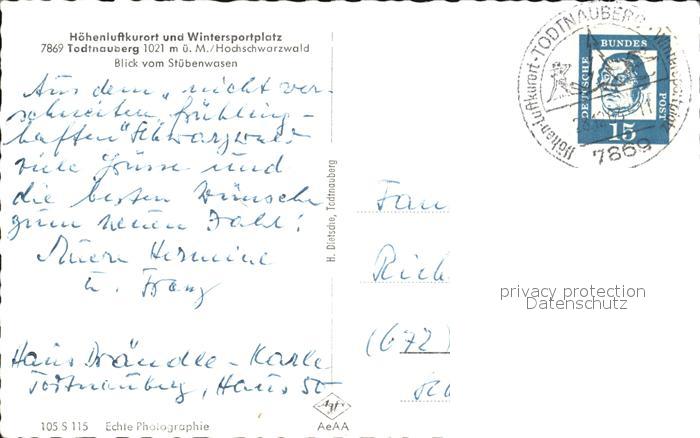 Höhenluftkurort und Wintersportplatz
7869 Todtnauberg 1021 m ü. M./Hochschwarzwald
Blick vom Stübenwasen
Aus dem „nicht ver-
schneiten frühling-
haften" Schwarzwald
viele Grüsse und
die besten Wünsche
zum neuen Jahr!
Hermine
u. Franz
Haus Brändle - Karle
Todtnauberg, Haus 50
105 S 115 Echte Photographie
H. Dietsche, Todtnauberg
Agfa
AeAA
Höhenluftkurort · TODTNAUBERG · Wintersportplatz
7869
DEUTSCHE
BUNDES
POST
15
Fam
(672)
privacy protection
Datenschutz